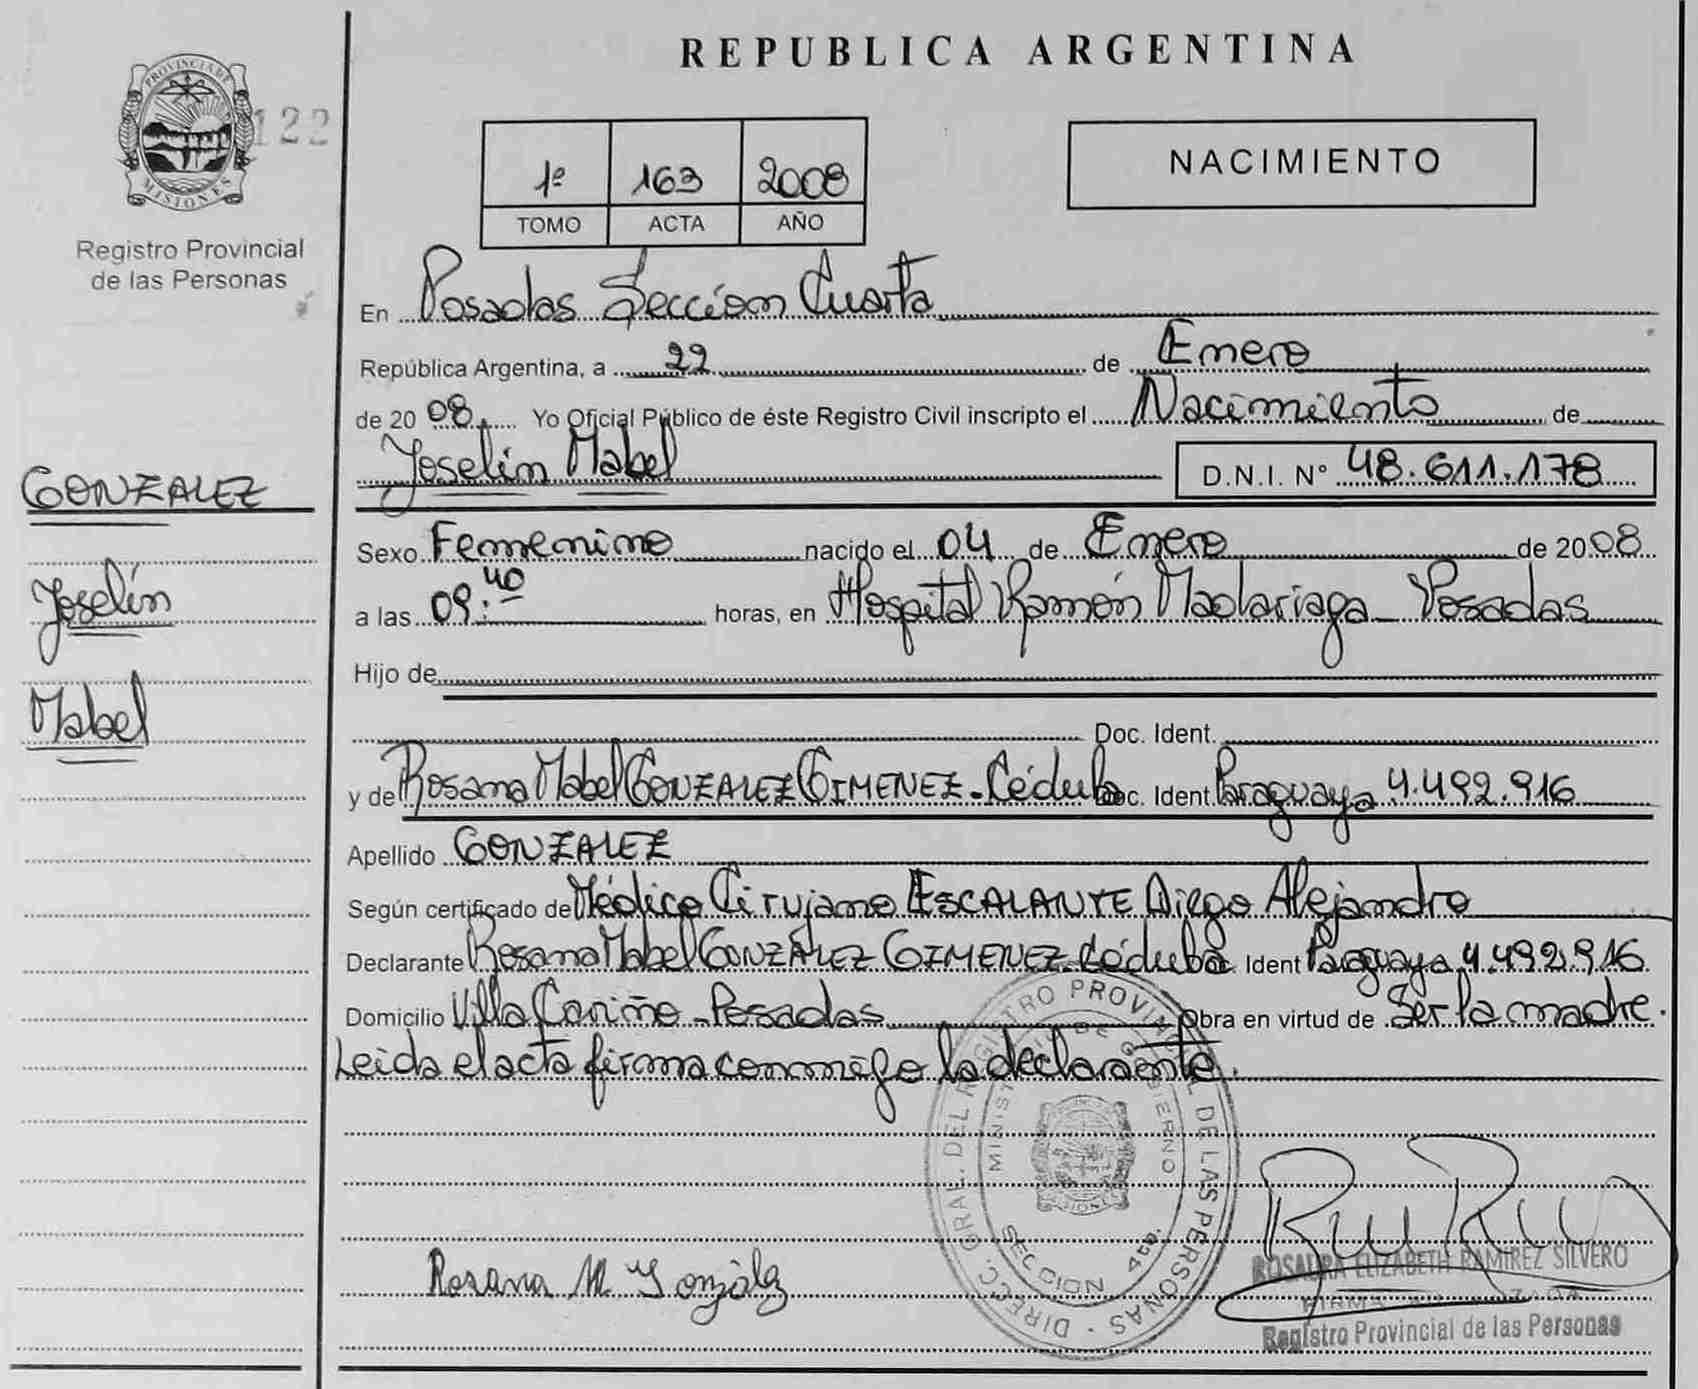 REPUBLICA ARGENTINA
PROVINCIA DE
MISIONES
122
Registro Provincial
de las Personas
1º 163 2008
TOMO ACTA AÑO
NACIMIENTO
En Posadas Sección Cuarta
República Argentina, a 22 de Enero
de 2008 Yo Oficial Público de éste Registro Civil inscripto el Nacimiento de
Joselin Mabel D.N.I. Nº 48.611.178
GONZALEZ
Joselín
Mabel
Sexo Femenino nacido el 04 de Enero de 2008
a las 09:40 horas, en Hospital Ramón Madariaga - Posadas
Hijo de
Doc. Ident.
y de Rosana Mabel GONZALEZ GIMENEZ - Cédula Doc. Ident Paraguaya 4.492.916
Apellido GONZALEZ
Según certificado de Médico Cirujano ESCALANTE Diego Alejandro
Declarante Rosana Mabel GONZALEZ GIMENEZ. Cédula Doc. Ident Paraguaya 4.492.916
Domicilio Villa Cariño - Posadas Obra en virtud de Ser la madre.
Leida el acta firma conmigo la declarante.
DIRECC. GRAL. DEL REGISTRO PROVINCIAL DE LAS PERSONAS
MINISTERIO DE GOBIERNO
SECCION 4ta.
Rosana M González
ROSAURA ELIZABETH RAMIREZ SILVERO
FIRMA AUTORIZADA
Registro Provincial de las Personas